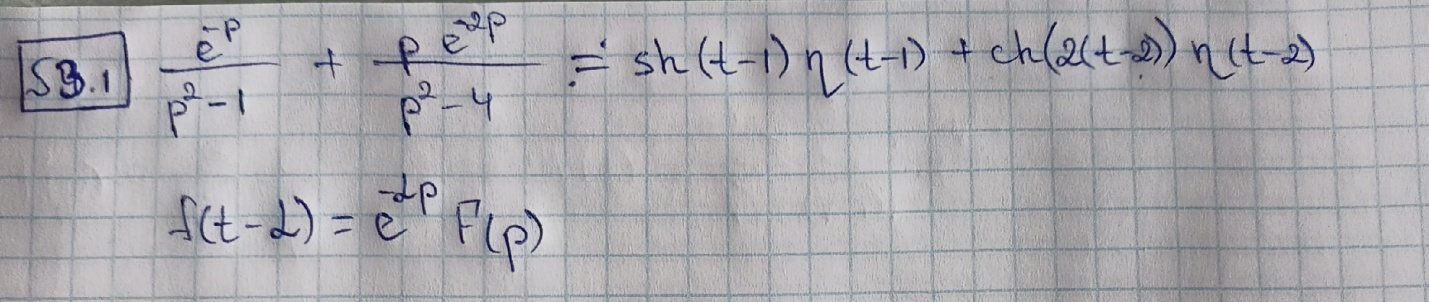 53.1 e^{-p}/(p^2-1) + p e^{-2p}/(p^2-4) ≓ sh(t-1)η(t-1) + ch(2(t-2))η(t-2)
f(t-α) = e^{-αp} F(p)